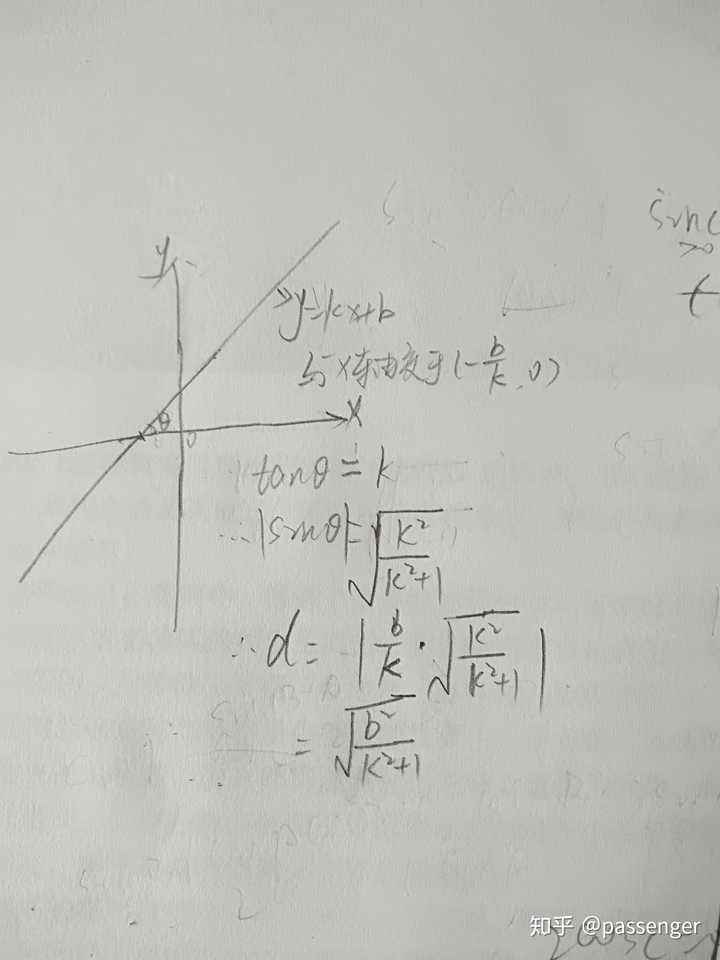 sinc
>0
y
y=kx+b
与X轴由交于(-b/k,0)
θ
0
X
tanθ=k
∴|sinθ|=√(k²/(k²+1))
∴d=|b/k·√(k²/(k²+1))|
=√(b²/(k²+1))
知乎 @passenger